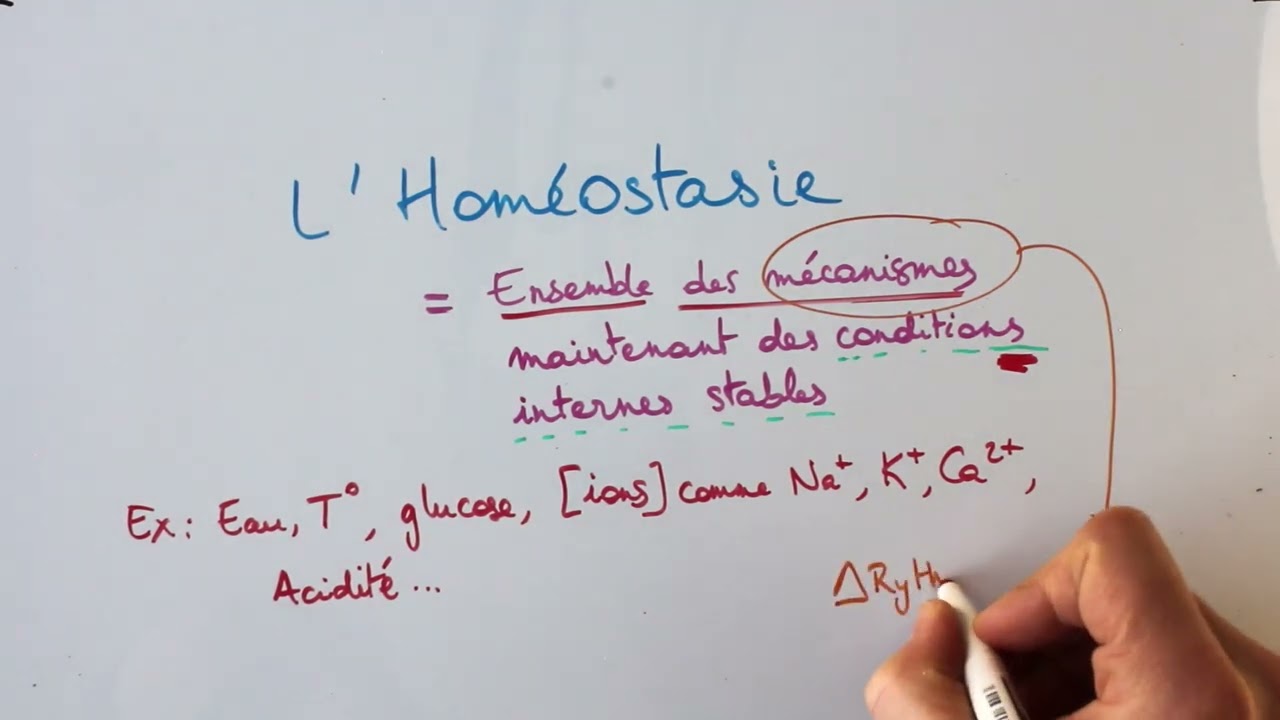 L'Homéostasie
= Ensemble des mécanismes
maintenant des conditions
internes stables
Ex: Eau, T°, glucose, [ions] comme Na⁺, K⁺, Ca²⁺,
Acidité...
ΔRyH